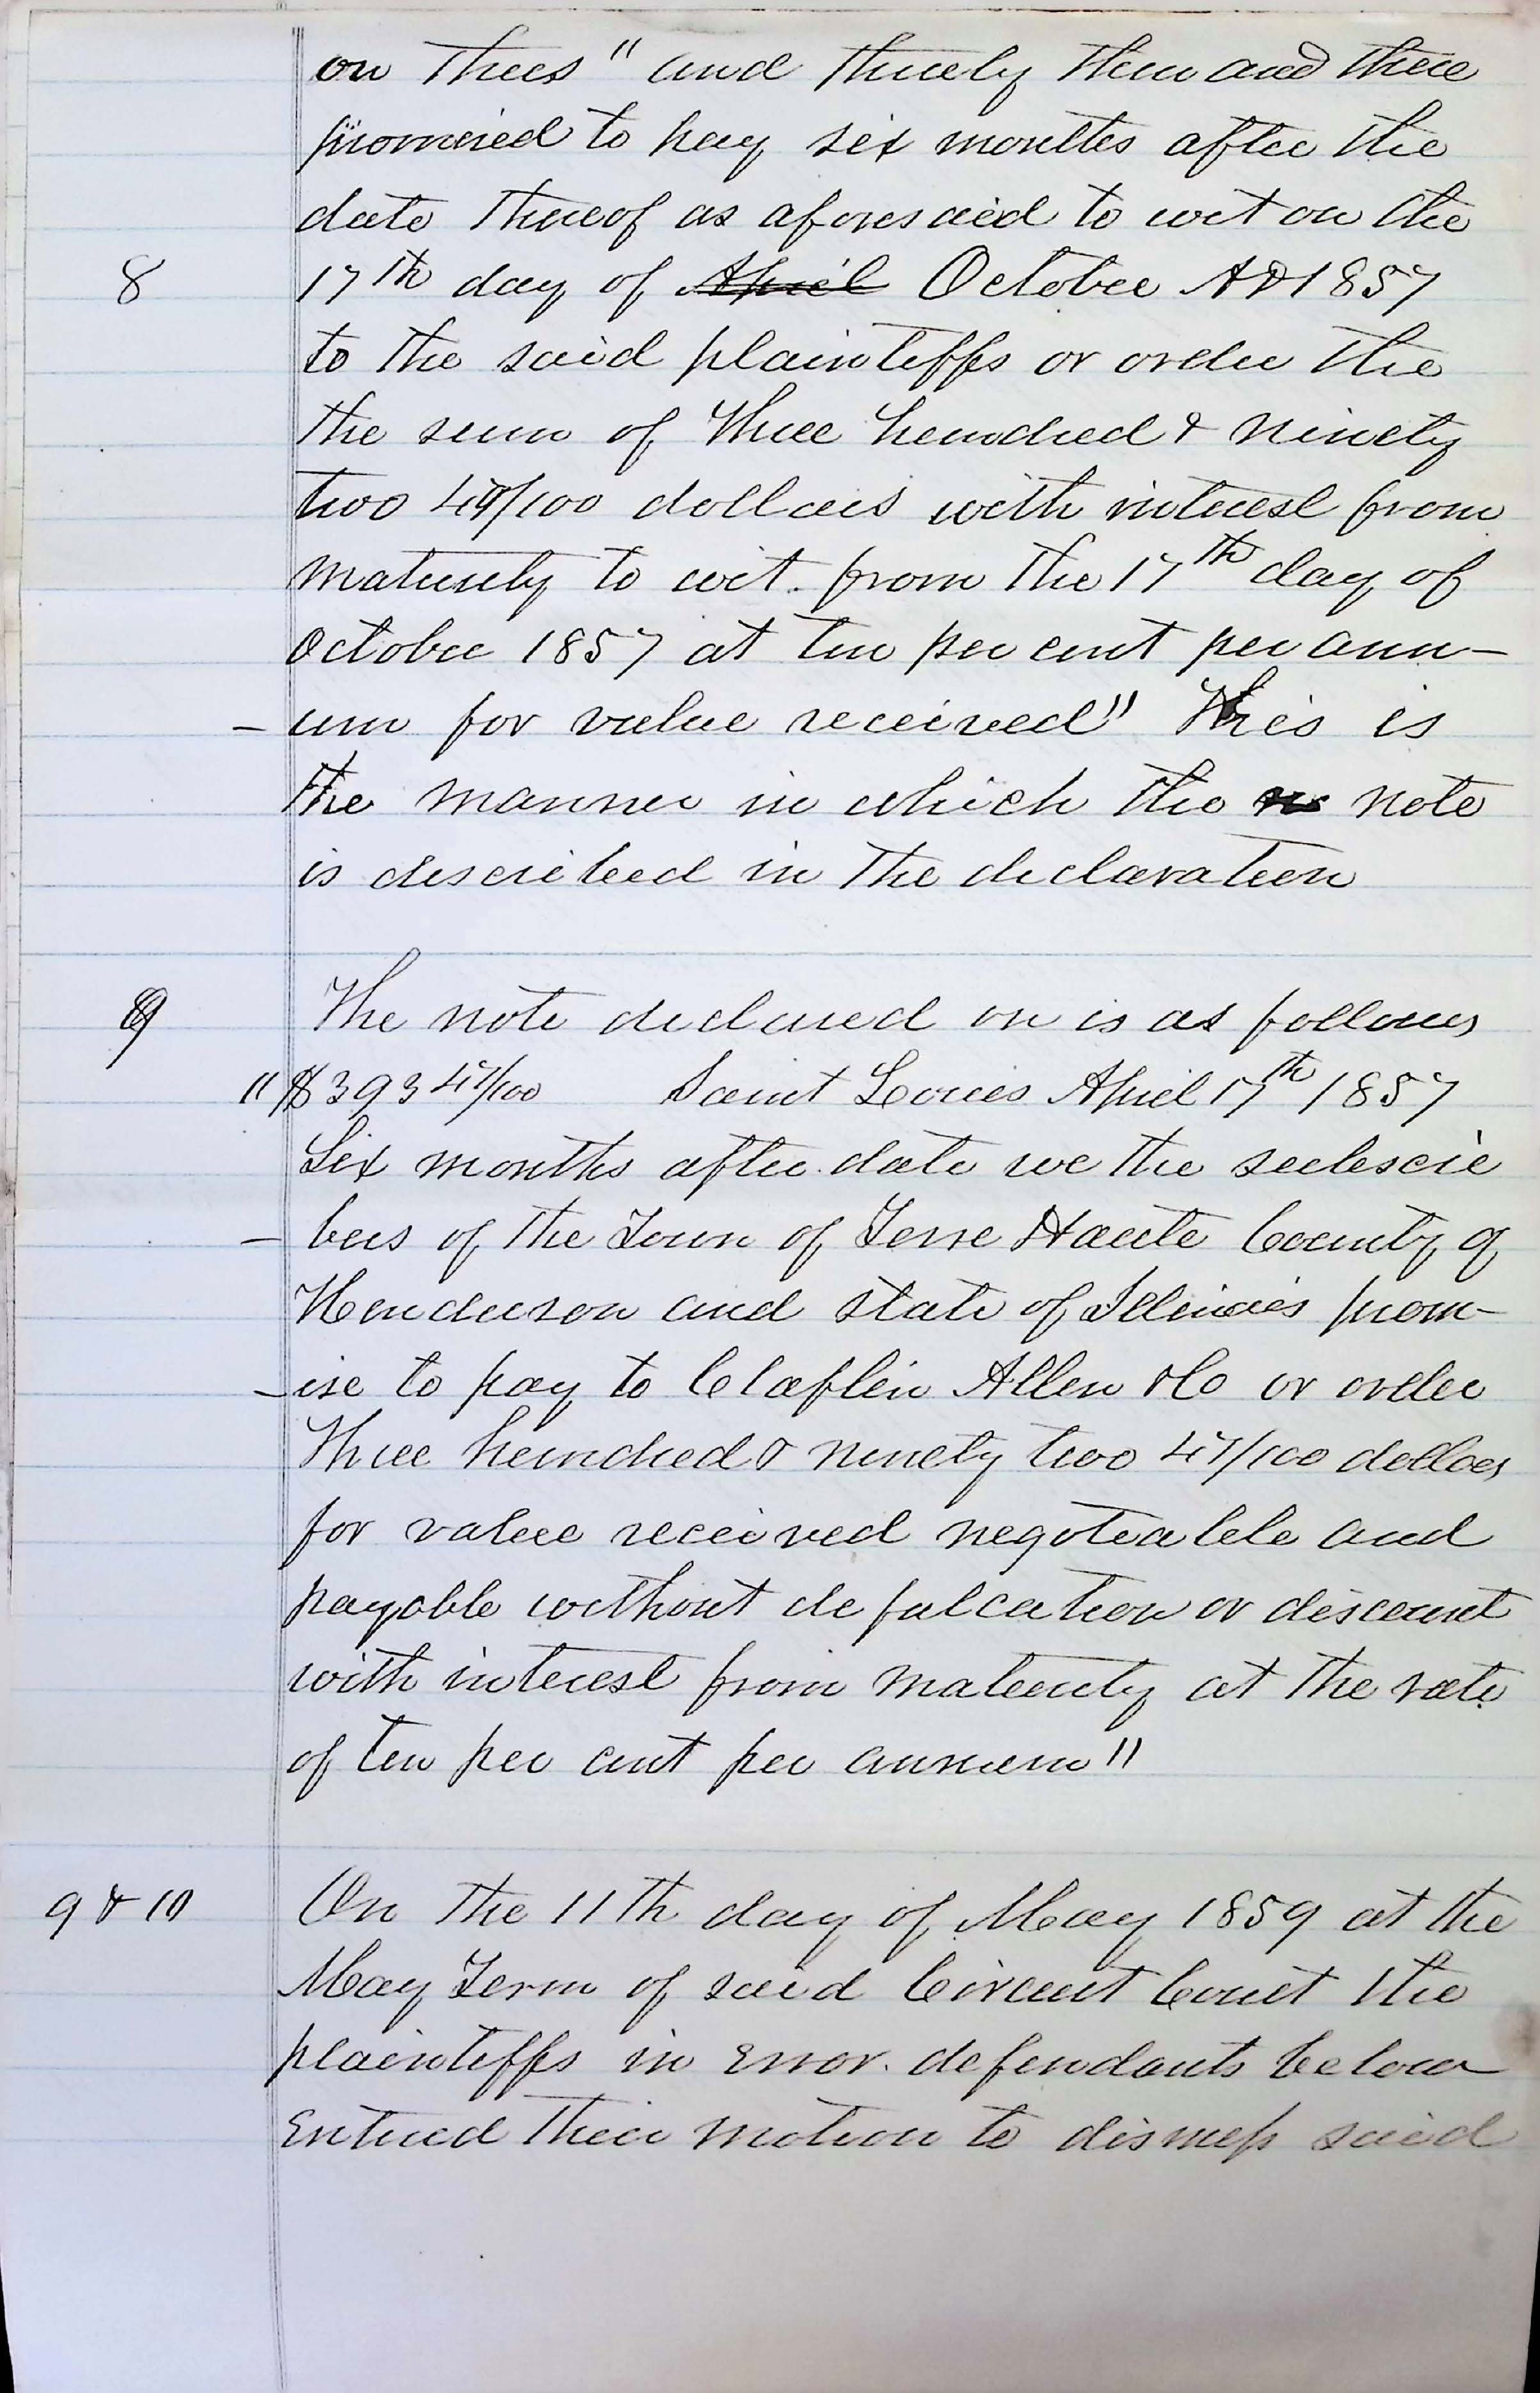 on thees" and thereby then and there
promised to pay six months after the
date thereof as aforesaid to wit on the
8 17th day of April October AD 1857
to the said plaintiffs or order the
the sum of three hundred & ninety
two 47/100 dollars with interest from
maturity to wit. from the 17th day of
October 1857 at ten per cent per ann-
-um for value received" This is
the manner in which the note
is described in the declaration
9 The note declared on is as follows
"$393 47/100 Saint Louis April 17th 1857
Six months after date we the subscri
-bers of the Town of Terre Haute County of
Henderson and State of Illinois prom-
-ise to pay to Claflin Allen & Co or order
Three hundred & ninety two 47/100 dollars
for value received negotiable and
payable without defalcation or discount
with interest from maturity at the rate
of ten per cent per annum"
9 & 10 On the 11th day of May 1859 at the
May Term of said Circuit Court the
plaintiffs in Error. defendants below
Entered their motion to dismiss said